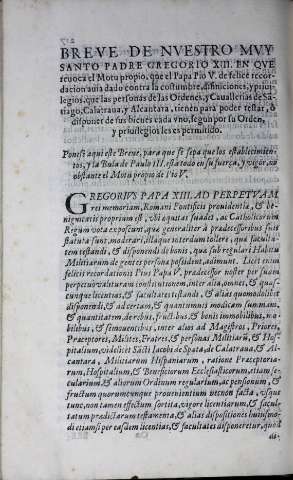 BREVE DE NVESTRO MVY
SANTO PADRE GREGORIO XIII. EN QVE
reuoca el Motu proprio, que el Papa Pio V. de felice recor-
dacion auia dado contra la costumbre, difiniciones, y priui-
legios, que las personas de las Ordenes, y Cauallerias de Sã-
tiago, Calatraua, y Alcantara, tienen para poder testar, ò
disponer de sus bienes cada vno, segun por su Orden,
y priuilegios les es permitido.
Ponese aqui este Breue, para que se sepa que los establecimien-
tos, y la Bula de Paulo III. està todo en su fuerça, y vigor, no
obstante el Motu proprio de Pio V.
GREGORIVS PAPA XIII. AD PERPETVAM
rei memoriam, Romani Pontificis prouidentia, & be-
nignitatis proprium est, vbi equitas suadet, ac Catholicorum
Regum vota exposcunt, que generaliter à prædecessoribus suis
statuta sunt, moderari, illaque interdum tollere, qua faculta-
tem testandi, & disponendi de bonis, qua sub regulari Habitu
Militiarum degentes personæ possident, adimunt. Licet enim
felicis recordationis Pius Papa V. prædecessor noster per suam
perpetuo valituram constitutionem, inter alia, omnes, & quas-
cunque licentias, & facultates testandi, & alias quomodolibet
disponendi, & ad certam, & quantumuis modicam summam,
& quantitatem, de rebus, fructibus, & bonis immobilibus, mo-
bilibus, & semouentibus, inter alios ad Magistros, Priores,
Præceptores, Milites, Fratres, & personas Militiarũ, & Hos-
pitalium, videlicet Sãcti Iacobi de Spata, de Calatraua, & Al-
cantara, Militiarum Hispaniarum, ratione Præceptoria-
rum, Hospitalium, & Beneficiorum Ecclesiasticorum, etiam se-
cularium & aliorum Ordinum regularium, ac pensionum, &
fructum quorumcunque prouenientium vecnon facta, vsque
tunc, non tamen effectum sortita, vigore licentiarum, & facul-
tatum prædictarum testamenta, & alias dispositiones huiusmo-
di etiamsi per easdem licentias, & facultates disponeretur, quod